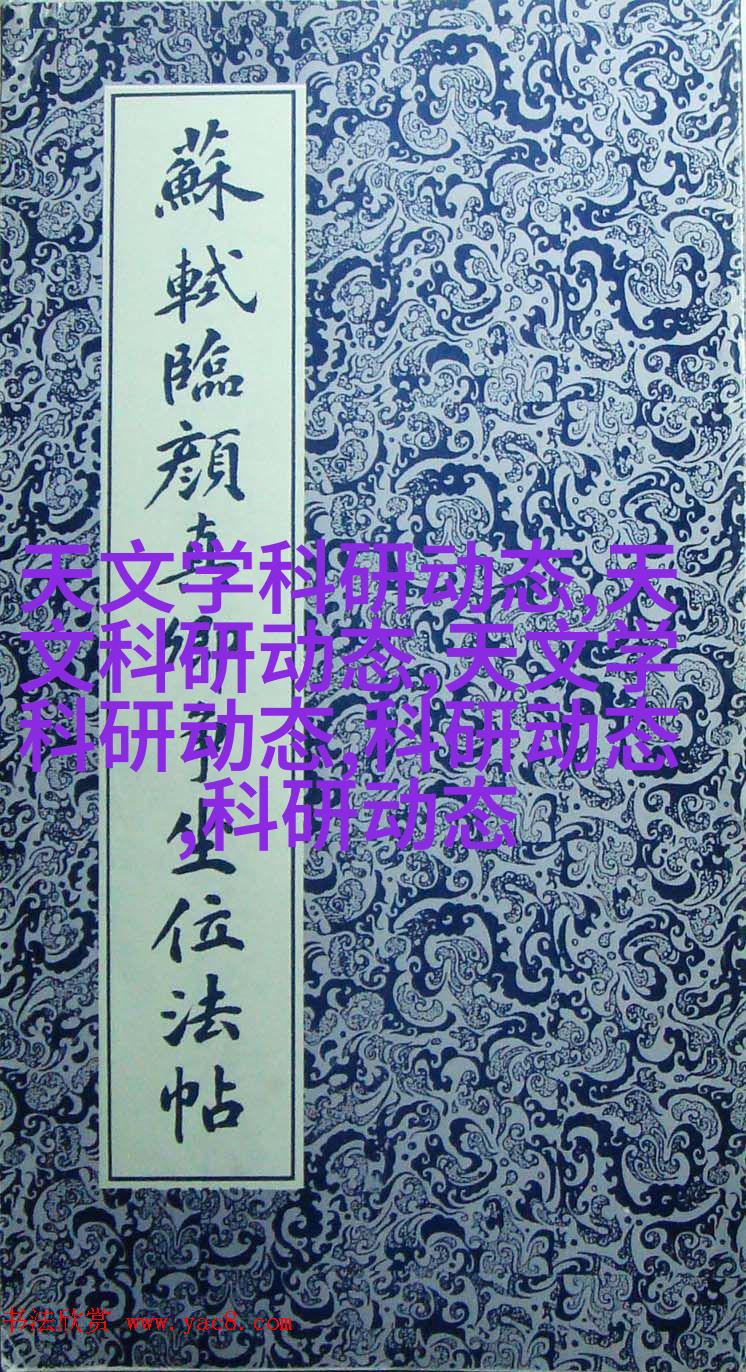 蘇軾臨顔真卿爭坐位法帖
天文学科研动态,天
文科研动态,天文学
科研动态,科研动态
,科研动态
书法欣赏 www.yac8.com